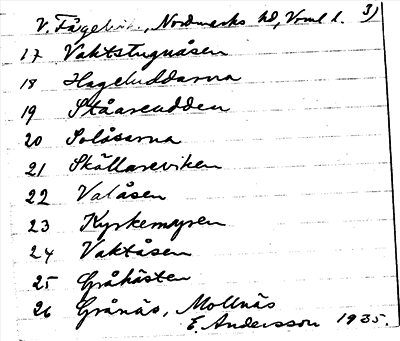 V. Fågelvik, Nordmarks hd, Vrml l. 3)
17 Vaktstuguåsen
18 Hageluddarna
19 Ståareudden
20 Solåsarna
21 Skållareviken
22 Valåsen
23 Kyrkemyren
24 Vaktåsen
25 Gråhästen
26 Grånäs, Mollnäs
E. Andersson 1935.